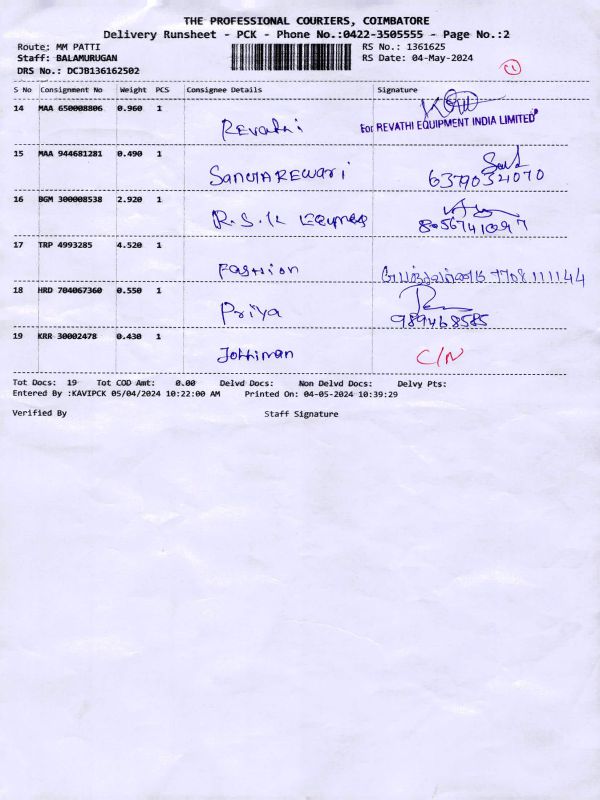 THE PROFESSIONAL COURIERS, COIMBATORE
Delivery Runsheet - PCK - Phone No.:0422-3505555 - Page No.:2
Route: MM PATTI RS No.: 1361625
Staff: BALAMURUGAN RS Date: 04-May-2024
DRS No.: DCJB136162502
S No Consignment No Weight PCS Consignee Details Signature
14 MAA 650008806 0.960 1
Revathi For REVATHI EQUIPMENT INDIA LIMITED
15 MAA 944681281 0.490 1
6379032070
16 BGM 300008538 2.920 1
R.S.K 8056741097
17 TRP 4993285 4.520 1
Fashion 7708111144
18 HRD 704067360 0.550 1
Priya 989468585
19 KRR 30002478 0.430 1
C/N
Tot Docs: 19 Tot COD Amt: 0.00 Delvd Docs: Non Delvd Docs: Delvy Pts:
Entered By :KAVIPCK 05/04/2024 10:22:00 AM Printed On: 04-05-2024 10:39:29
Verified By Staff Signature